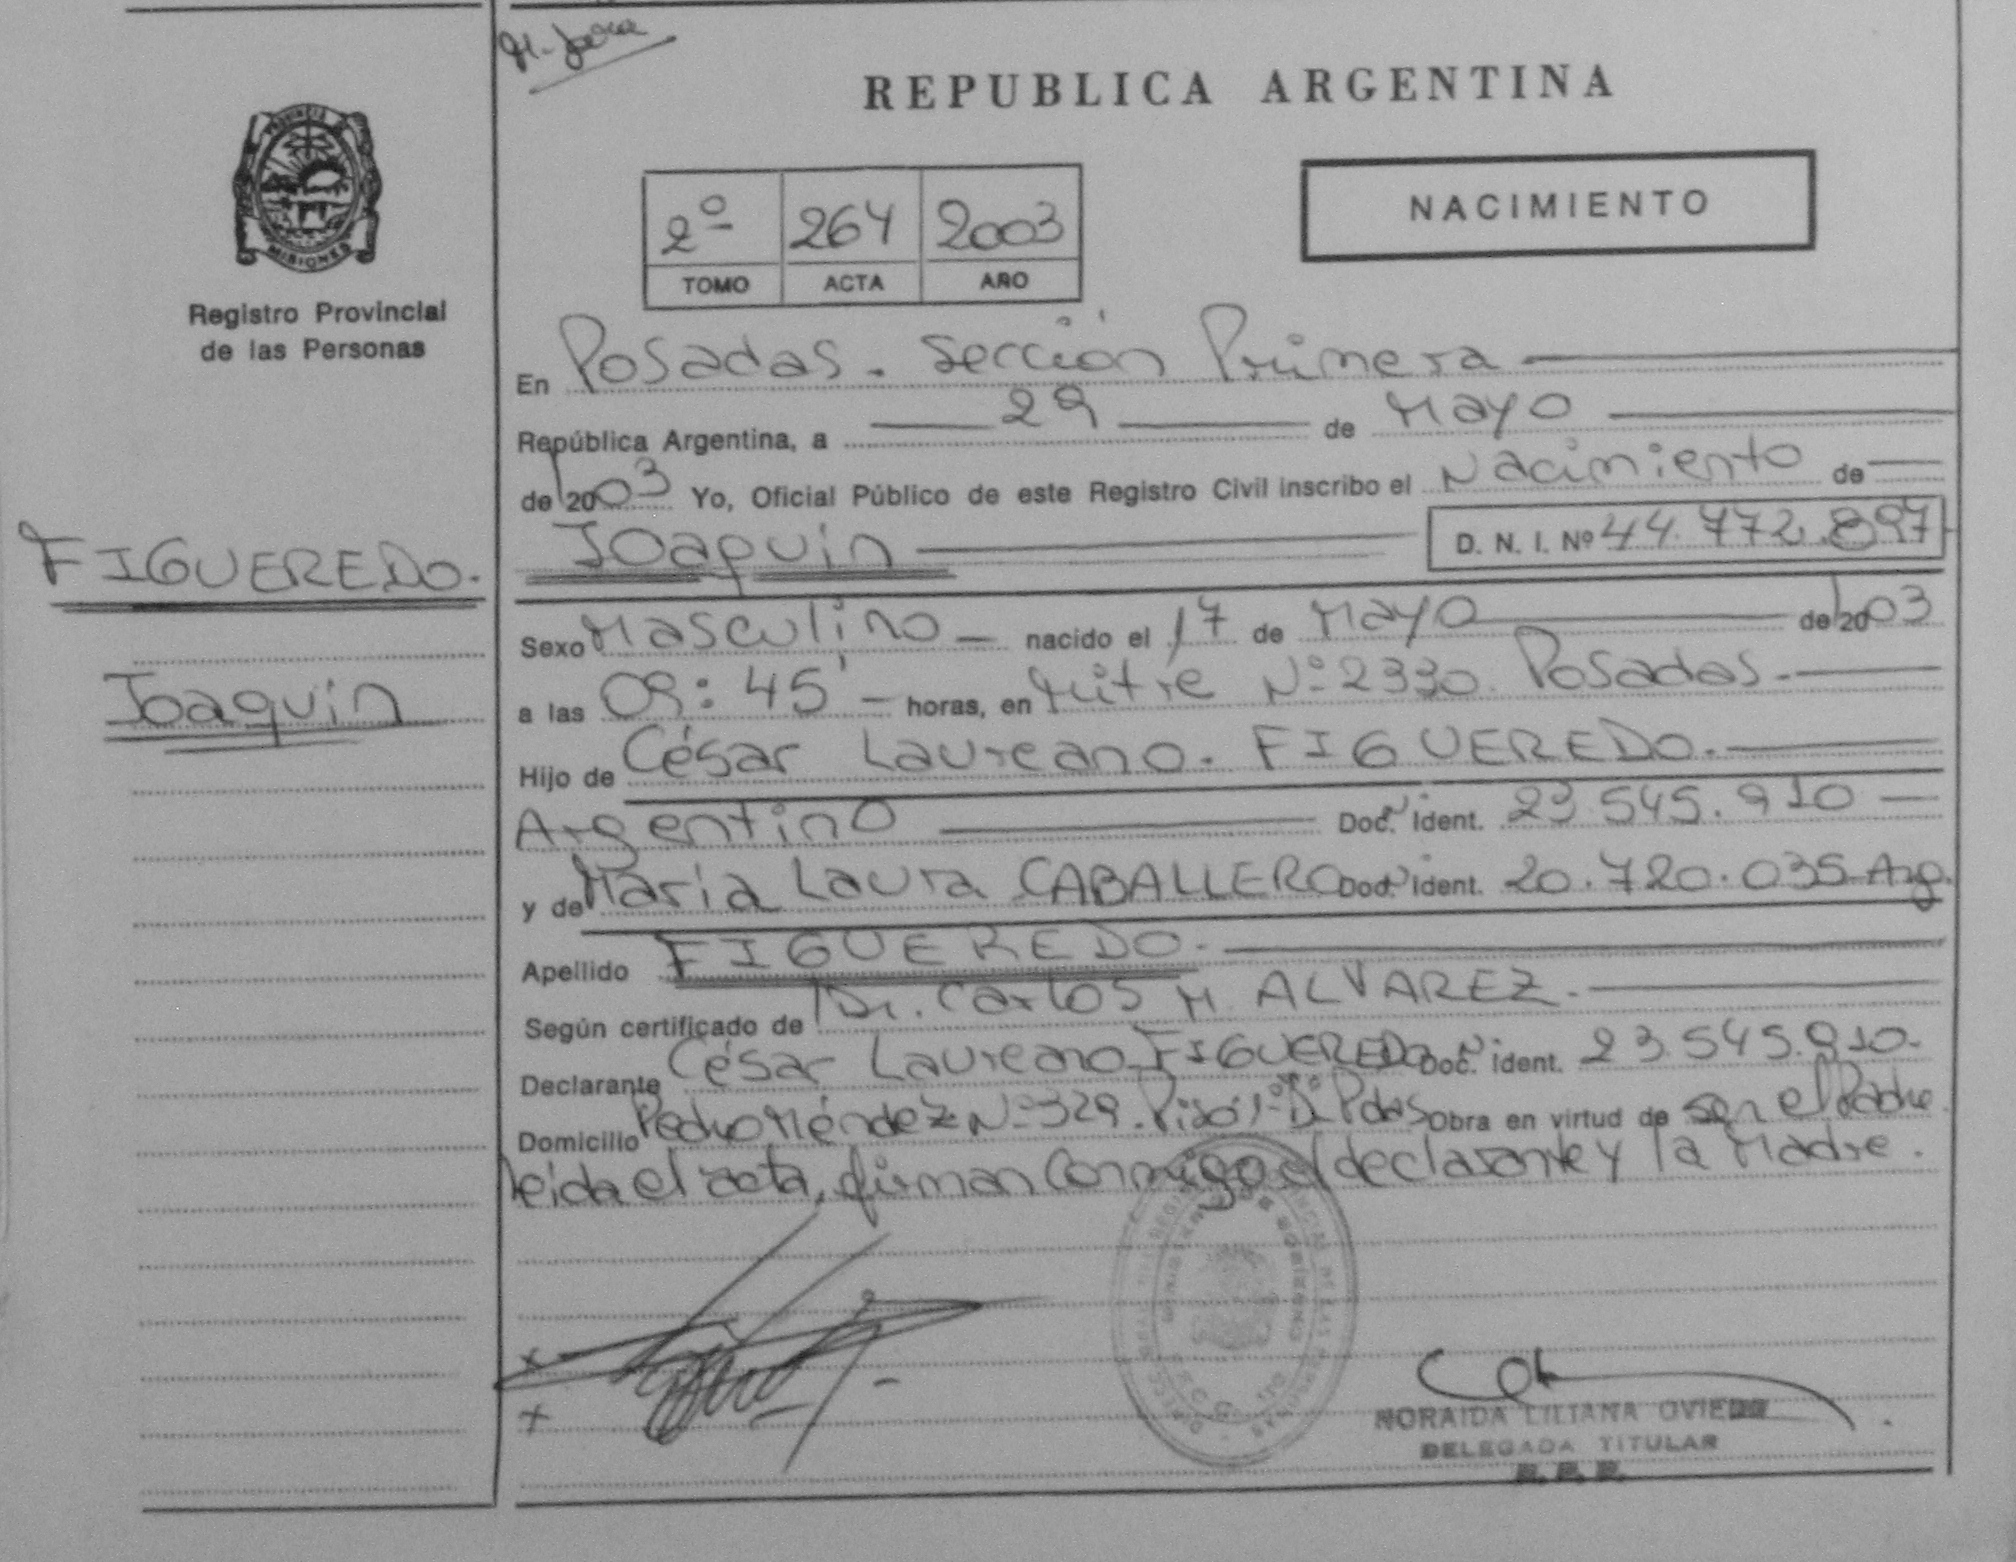 REPUBLICA ARGENTINA
PROVINCIA DE
MISIONES
Registro Provincial
de las Personas
2º 264 2003
TOMO ACTA AÑO
NACIMIENTO
En Posadas. Sección Primera
República Argentina, a 29 de Mayo
de 2003 Yo, Oficial Público de este Registro Civil inscribo el Nacimiento de
Joaquín D. N. I. Nº 44.772.897
FIGUEREDO.
Joaquín
Sexo Masculino nacido el 17 de Mayo de 2003
a las 09:45' horas, en Mitre Nº 2330. Posadas.
Hijo de César Laureano. FIGUEREDO.
Argentino Doc. ident. 23.545.910
y de María Laura CABALLERO Doc. ident. 20.720.035 Arg.
Apellido FIGUEREDO.
Según certificado de Dr. Carlos M. ALVAREZ.
Declarante César Laureano FIGUEREDO Doc. ident. 23.545.910.
Domicilio Pedro Méndez Nº 329. Piso 1º D. Pdas Obra en virtud de ser el Padre
leida el acta, firman conmigo el declarante y la Madre.
NORAIDA LILIANA OVIEDO
DELEGADA TITULAR
R.P.P.